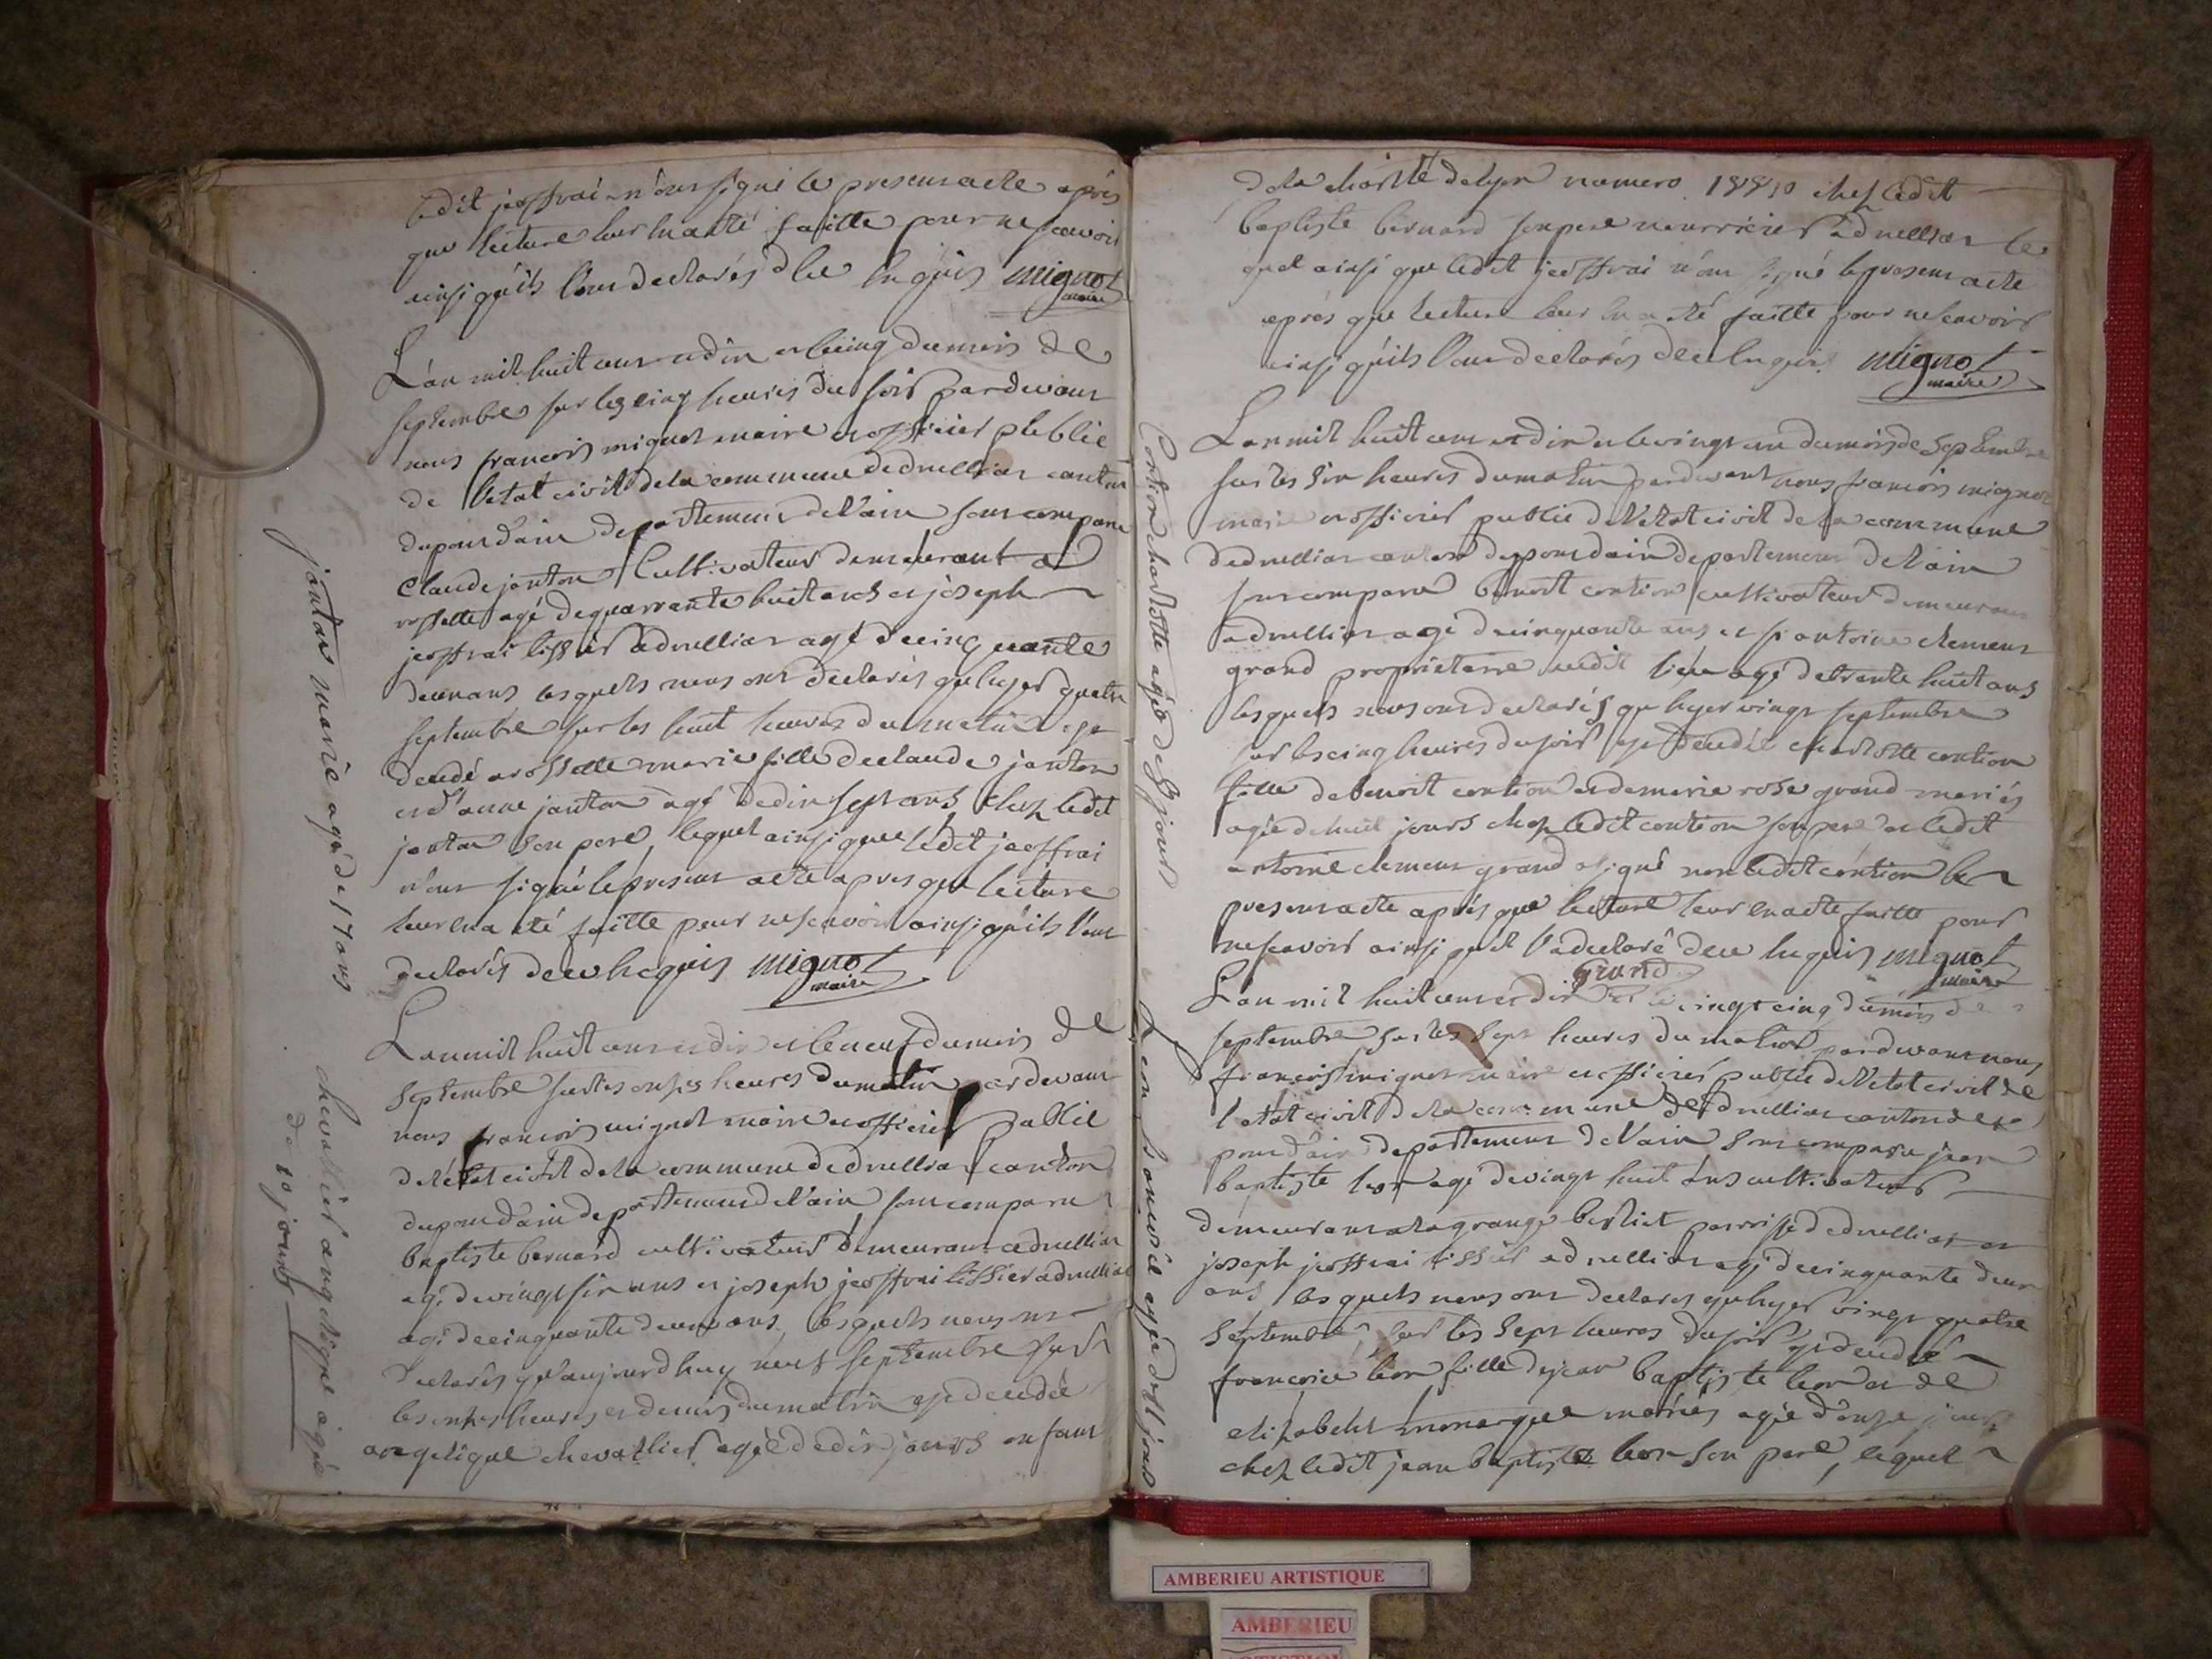 ledit jeoffrai n'ont signé le present acte après
que lecture leur en a eté faitte pour ne scavoir
ainsi qu'ils l'ont declarés de ce enquis mignot
maire
L'an mil huit cent et dix et le cinq du mois de
septembre sur les cinq heures du soir pardevant
nous francois mignot maire et officier public
de l'etat civil de la commune de druillat canton
du pont d'ain departement de l'ain sont comparu
Claude janton Cultivateur demeurant a
rossette agé de quarrante huit ans et joseph
jeoffrai tissier a druillat agé de cinquante
deux ans lesquels nous ont declarés qu'hyer quatre
septembre sur les huit heures du matin est
decedé a rossette marie fille de claude janton
et d'anne janton agé de dix sept ans chez ledit
janton son pere, lequel ainsi que ledit jeoffrai
n'ont signé le present acte apres que lecture
leur en a eté faitte pour ne scavoir ainsi qu'ils l'ont
declarés de ce enquis mignot
maire
L'an mil huit cent et dix et le neuf du mois de
septembre sur les onzes heures du matin pardevant
nous francois mignot maire et officier public
de l'état civil de la commune de druillat canton
du pont d'ain departement de l'ain sont comparu
baptiste bernard cultivateur demeurant a druillat
agé de vingt six ans et joseph jeoffrai tissier a druillat
agé de cinquante deux ans, lesquels nous ont
declarés qu'aujourd'huy neuf septembre sur
les onzes heures et demis du matin est decedée
angelique chevallier agée de dix jours enfant
janton marie agé de 17 ans
chevallier angelique agée
de 10 jours
de la charité de lyon numero chez ledit
baptiste bernard son pere nourricier a druillat le
quel ainsi que ledit jeoffrai n'ont signé le present acte
après que lecture leur en a eté faitte pour ne scavoir
ainsi qu'ils l'ont declarés de ce enquis mignot
maire
L'an mil huit cent et dix et le vingt un du mois de septembre
sur les six heures du matin pardevant nous francois mignot
maire et officier public de l'etat civil de la commune
de druillat canton du pont d'ain departement de l'ain
sont comparu benoit contion cultivateur demeurant
a druillat agé de cinquante ans et antoine clement
grand proprietaire audit lieu agé de trente huit ans
lesquels nous ont declarés qu'hyer vingt septembre
sur les cinq heures du soir est decedée charlotte contion
fille de benoit contion et de marie rose grand mariés
agée de huit jours chez ledit contion son pere et ledit
antoine clement grand a signé non ledit contion le
present acte après que lecture leur en a eté faitte pour
ne scavoir ainsi qu'il l'a declaré de ce enquis mignot
grand maire
L'an mil huit cent et dix et le vingt cinq du mois de
septembre sur les sept heures du matin pardevant nous
francois mignot maire et officier public de l'etat civil de
l'etat civil de la commune de druillat canton de
pont d'ain departement de l'ain sont comparu jean
baptiste leon agé de vingt huit ans cultivateur
demeurant a la grange berliet parroisse de druillat et
joseph jeoffrai tissier a druillat agé de cinquante deux
ans lesquels nous ont declarés qu'hyer vingt quatre
septembre sur les sept heures du soir est decedé
francoise leon fille de jean baptiste leon et de
elizabeth monarque mariés agée d'onze jours
chez ledit jean baptiste leon son pere, lequel
Contion charlotte agée de 8 jours
Leon francoise agée de 11 jours
AMBERIEU ARTISTIQUE
AMBERIEU